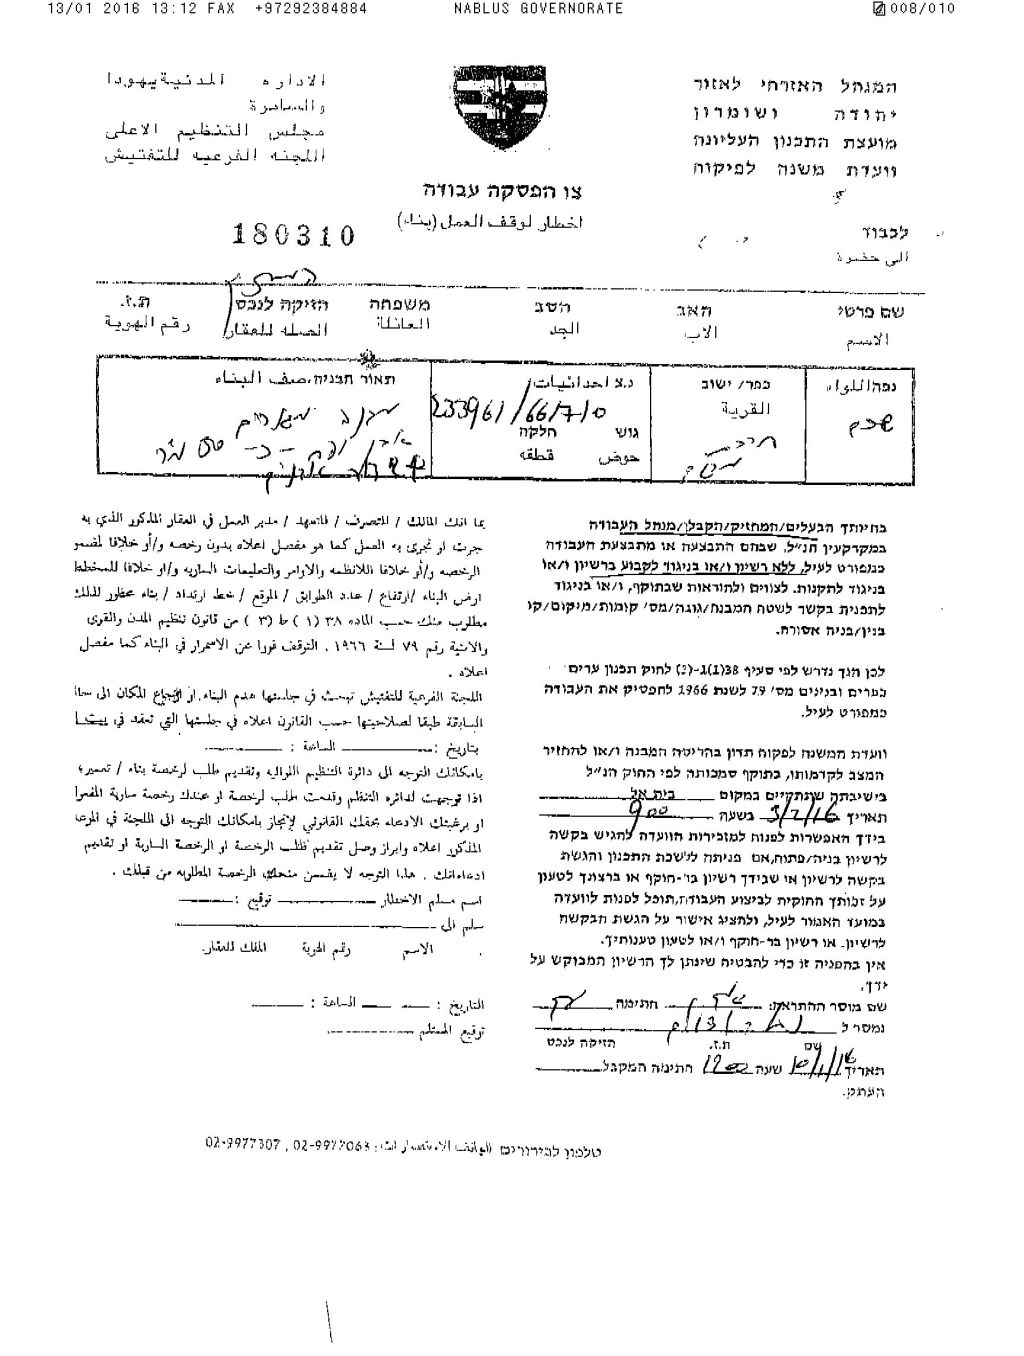 13/01 2016 13:12 FAX +97292384884 NABLUS GOVERNORATE 008/010
המנהל האזרחי לאזור
יהודה ושומרון
מועצת התכנון העליונה
וועדת משנה לפיקוח
الاداره المدنية يهودا
والسامرة
مجلس التنظيم الاعلى
اللجنه الفرعيه للتفتيش
צו הפסקה עבודה
اخطار لوقف العمل (بناء)
180310
לכבוד
الى حضرة
שם פרטי האב הסב משפחה הזיקה לנכס ת.ז.
الاسم الاب الجد العائلة الصله للعقار رقم الهوية
נפה/اللواء כפר/ ישוב د.צ احداثيات תאור הבניה،صف البناء
القرية
שכם
233961/66710
גוש חלקה
حوض قطقه
בהיותך הבעלים/המחזיק/הקבלן/מנהל העבודה
במקרקעין הנ״ל, שבהם התבצעה או מתבצעת העבודה
כמפורט לעיל, ללא רשיון ו/או בניגוד לקבוע ברשיון ו/או
בניגוד לתקנות. לצווים ולהוראות שבתוקף, ו/או בניגוד
לתכנית בקשר לשטח המבנה/גובה/מס׳ קומות/מיקום/קו
בנין/בניה אסורה.
לכן הנך נדרש לפי סעיף 38(1)-(3) לחוק תכנון ערים
כפרים ובנינים מס׳ 79 לשנת 1966 להפסיק את העבודה
כמפורט לעיל.
וועדת המשנה לפקוח תדון בהריסת המבנה ו/או להחזיר
המצב לקדמותו, בתוקף סמכותה לפי החוק הנ״ל
בישיבתה שתתקיים במקום בית אל
תאריך 3/2/16 בשעה 900
בידך האפשרות לפנות למזכירות הוועדה להגיש בקשה
לרשיון בניה/פתוח,אם פניתה ללשכת התכנון והגשת
בקשה לרשיון או שבידך רשיון בר-תוקף או ברצתך לטעון
על זכותך החוקית לביצוע העבודה,תוכל לפנות לוועדה
במועד האמור לעיל, ולהציג אישור על הגשת הבקשה
לרשיון. או רשיון בר-תוקף ו/או לטעון טענותיך.
אין בהפניה זו כדי להבטיח שינתן לך הרשיון המבוקש על
ידך.
שם מוסר ההתראה: חתימה
נמסר ל
שם ת.ז. הזיקה לנכס
תאריך 10/1/16 שעה 1200 חתימה המקבל
העתק.
بما انك المالك / المتصرف / المتعهد / مدير العمل في العقار المذكور الذي به
جرت او تجرى به العمل كما هو مفصل اعلاه بدون رخصه و/أو خلافا لمضمو
الرخصه و/أو خلافا للانظمه والاوامر والتعليمات الساريه و/او خلافا للمخطط
ارض البناء /ارتفاع / عدد الطوابق / الموقع / خط ارتداد / بناء محظور لذلك
مطلوب منك حسب الماده ٣٨ (١) ط (٣) من قانون تنظيم المدن والقرى
والابنية رقم ٧٩ لسنة ١٩٦٦ . التوقف فورا عن الاسمرار في البناء كما مفصل
اعلاه .
اللجنة الفرعية للتفتيش تبحث في جلستها هدم البناء او ارجاع المكان الى
السابقة طبقا لصلاحيتها حسب القانون اعلاه في جلستها التي تعقد في
بتاريخ : الساعة :
بامكانك التوجه الى دائرة التنظيم اللوائيه وتقديم طلب لرخصة بناء / تعمير؛
اذا توجهت لدائره التنظم وقدمت طلب لرخصة او عندك رخصة سارية المفعو
او برغبتك الادعاء بحقك القانوني لإنجاز بامكانك التوجه الى اللجنة في
المذكور اعلاه وابراز وصل تقديم طلب الرخصة او الرخصة السارية او تقديم
ادعاءاتك . هذا التوجه لا يضمن منحك الرخصة المطلوبه من قبلك .
اسم مسلم الاخطار توقيع :
سلم الى
الاسم رقم الهوية الملك للعقار.
التاريخ : الساعة :
توقيع المستلم
טלפון לבירורים 02-9977063 , 02-9977307